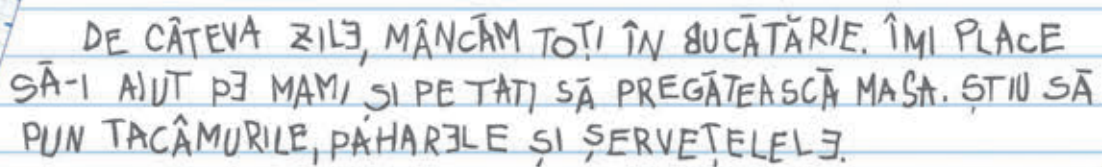 DE CÂTEVA ZILE, MÂNCĂM TOȚI ÎN BUCĂTĂRIE. ÎMI PLACE
SĂ-I AJUT PE MAMI ȘI PE TATI SĂ PREGĂTEASCĂ MASA. ȘTIU SĂ
PUN TACÂMURILE, PAHARELE ȘI ȘERVEȚELELE.